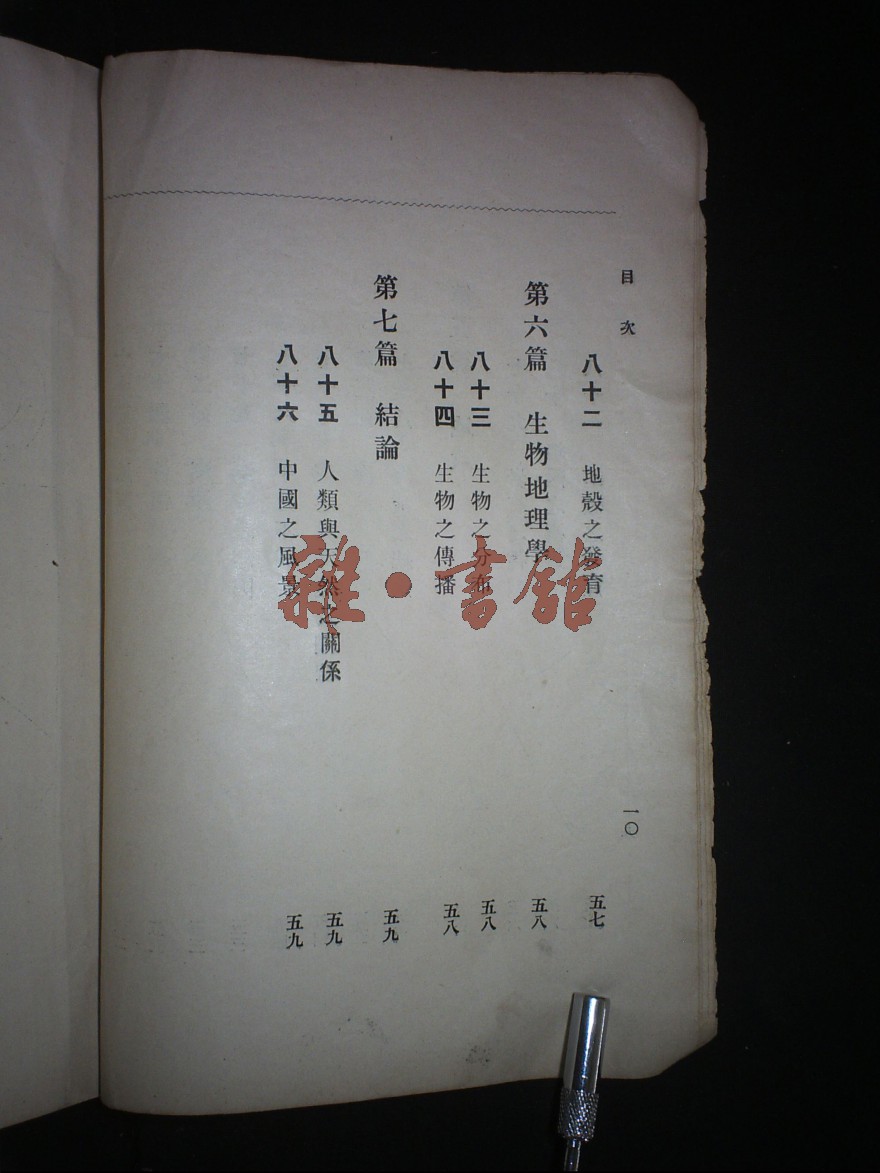 目次
八十二 地殼之發育 五七
第六篇 生物地理學 五八
八十三 生物之分布 五八
八十四 生物之傳播 五八
第七篇 結論 五九
八十五 人類與天然之關係 五九
八十六 中國之風景 五九
一〇
雜·書館